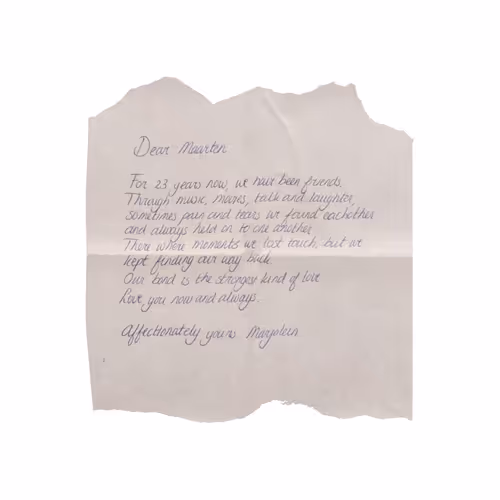 Dear Maarten
For 23 years now, we have been friends.
Through music, movies, talk and laughter,
sometimes pain and tears we found eachother
and always held on to one another
There where moments we lost touch, but we
kept finding our way back.
Our bond is the strongest kind of love
Love you now and always.
Affectionately yours Marjolein